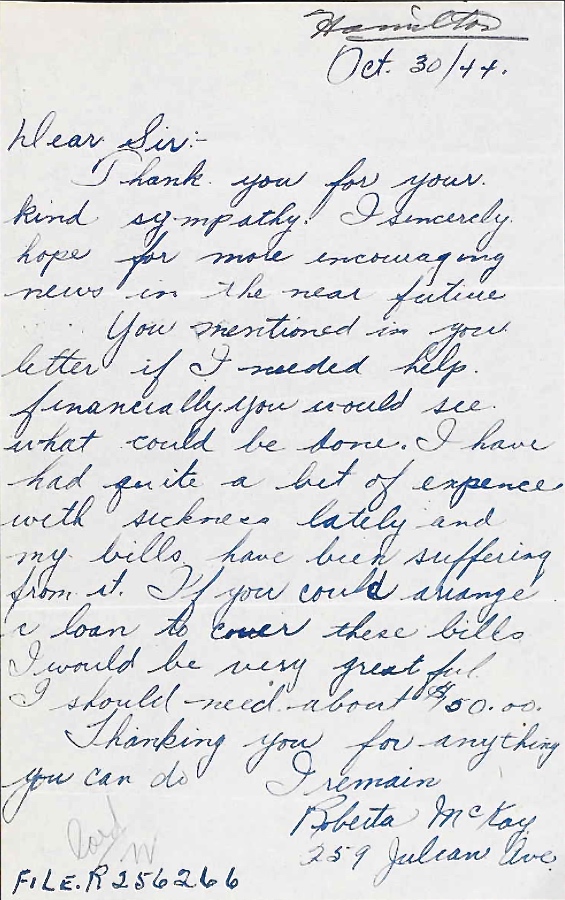 Hamilton
Oct. 30/44.
Dear Sir:-
Thank you for your
kind sympathy. I sincerely
hope for more encouraging
news in the near future
You mentioned in you
letter if I needed help
financially you would see
what could be done. I have
had quite a bit of expence
with sickness lately and
my bills have been suffering
from it. If you could arange
a loan to cover these bills
I would be very greatful
I should need about $50.00.
Thanking you for anything
you can do I remain
Roberta McKay
259 Julian Ave
FILE.R256266